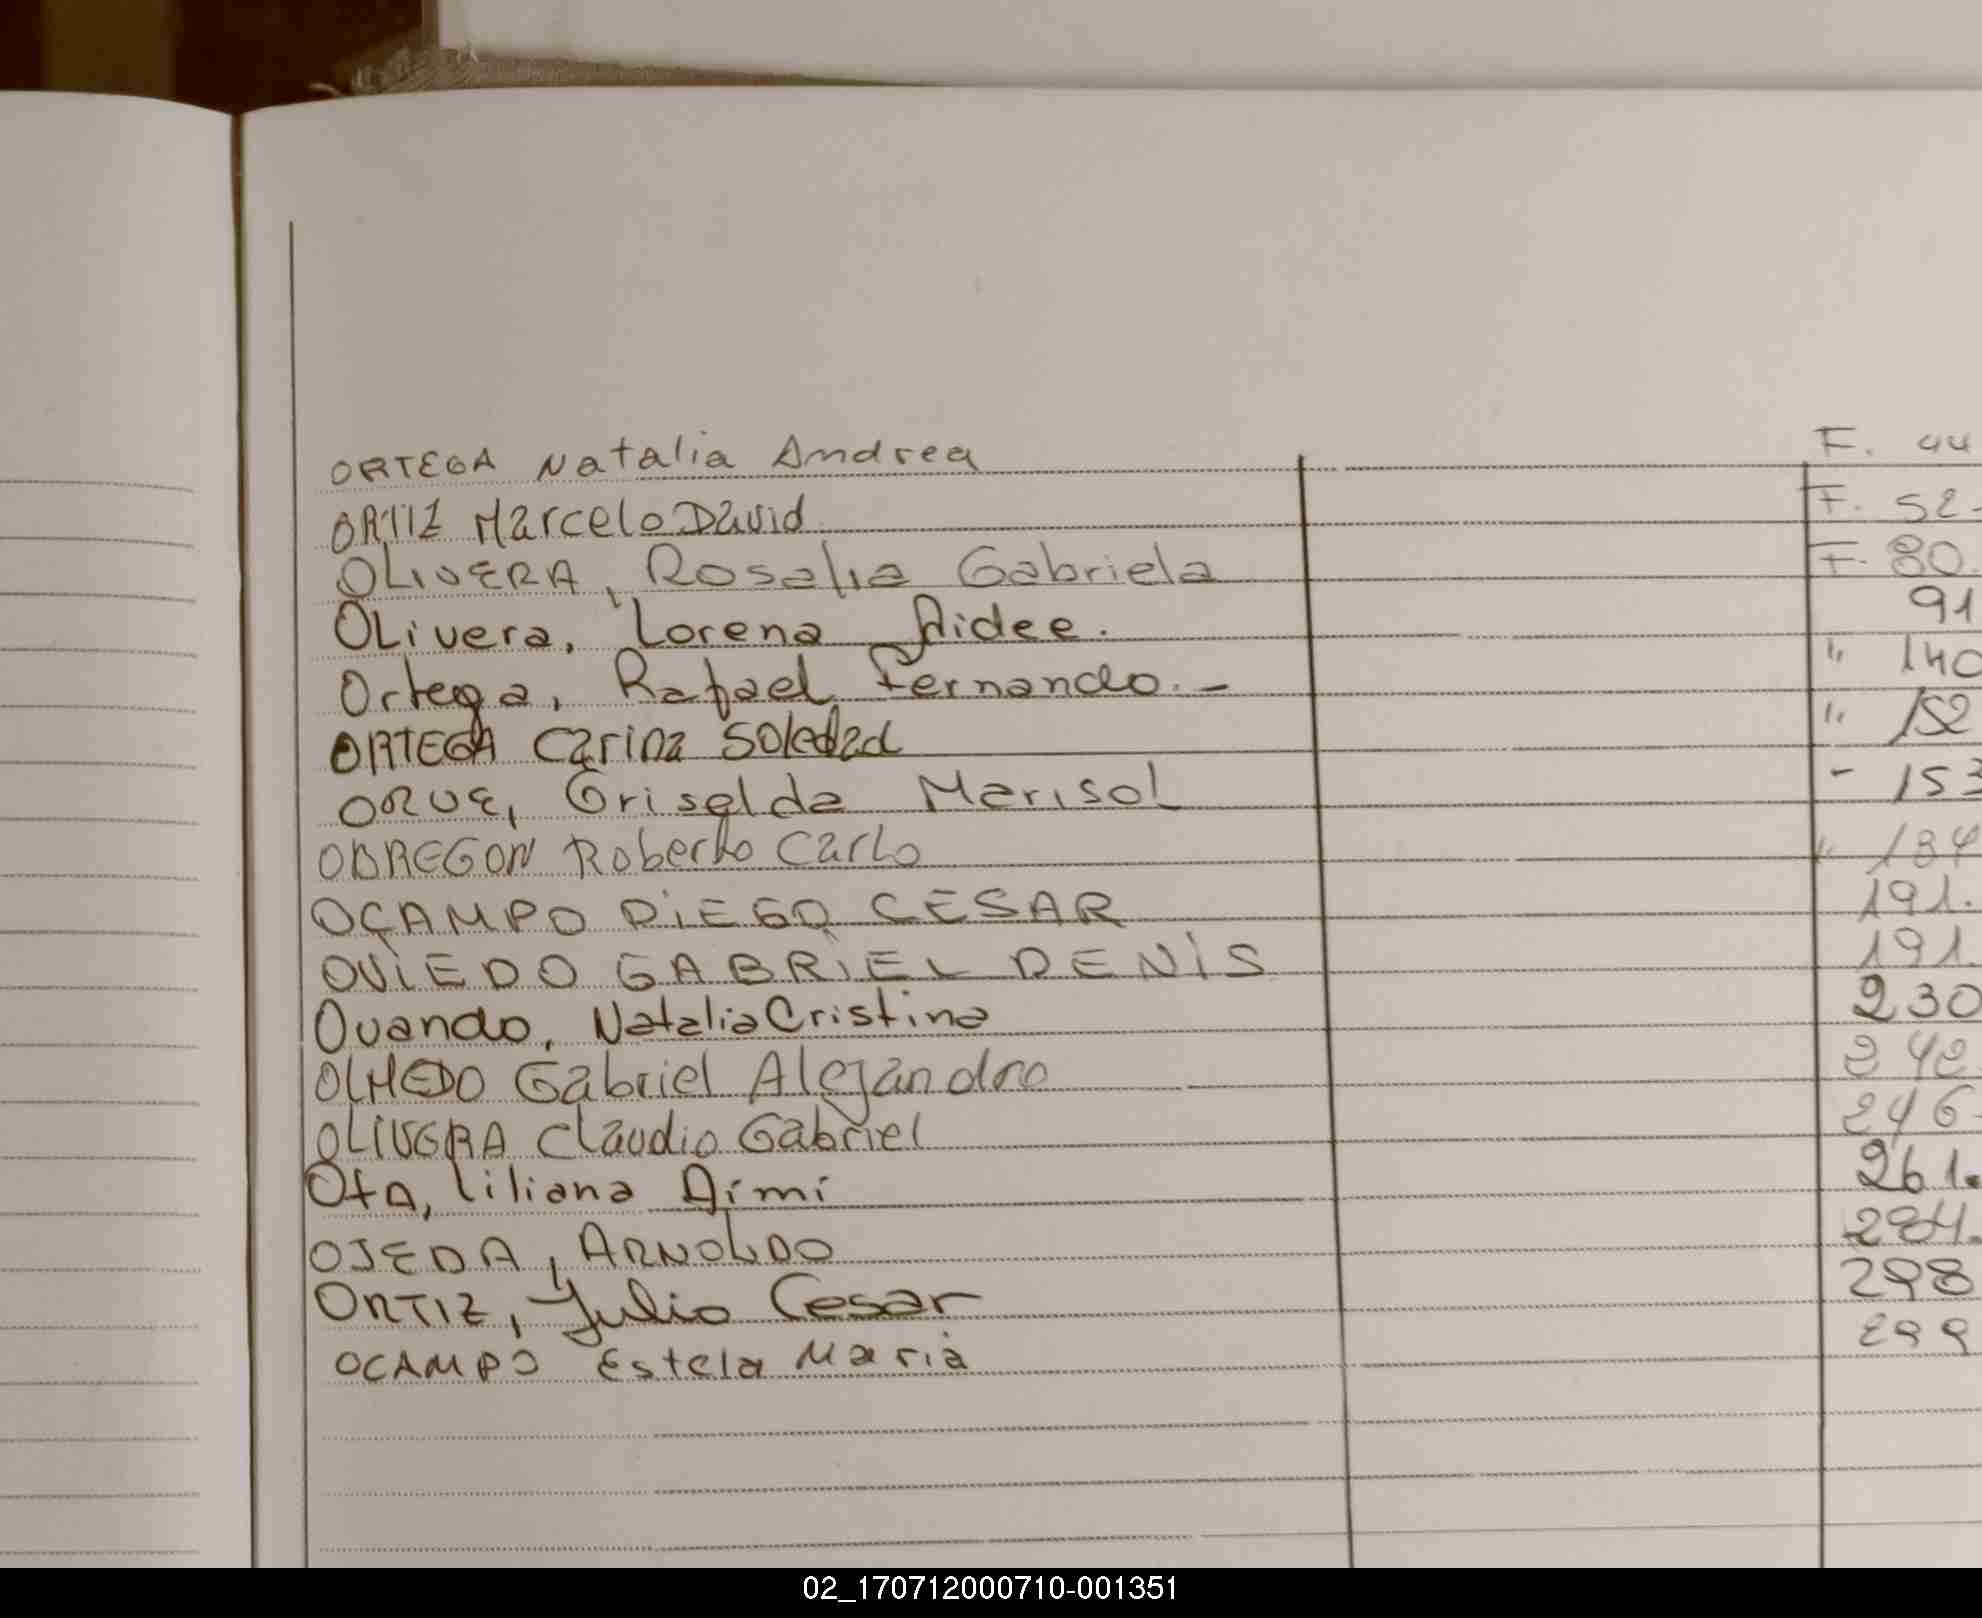 ORTEGA Natalia Andrea F. 44
ORTIZ Marcelo David F. 52-
OLIVERA, Rosalia Gabriela F. 80.
OLivera, Lorena Aidee. 91
Ortega, Rafael Fernando.- " 140
ORTEGA Carina Soledad " 152
ORUE, Griselda Marisol - 153
OBREGON Roberto Carlo " 184
OCAMPO DiEGO CESAR 191.
OViEDO GABRiEL DENiS 191.
Ovando, Natalia Cristina 230
OLMEDO Gabriel Alejandro 242
OLIVERA Claudio Gabriel 246
Liliana Aimi 261.
OJEDA, ARNOLDO 284.
ORTIZ, Julio Cesar 298
OCAMPO Estela Maria 299
02_170712000710-001351